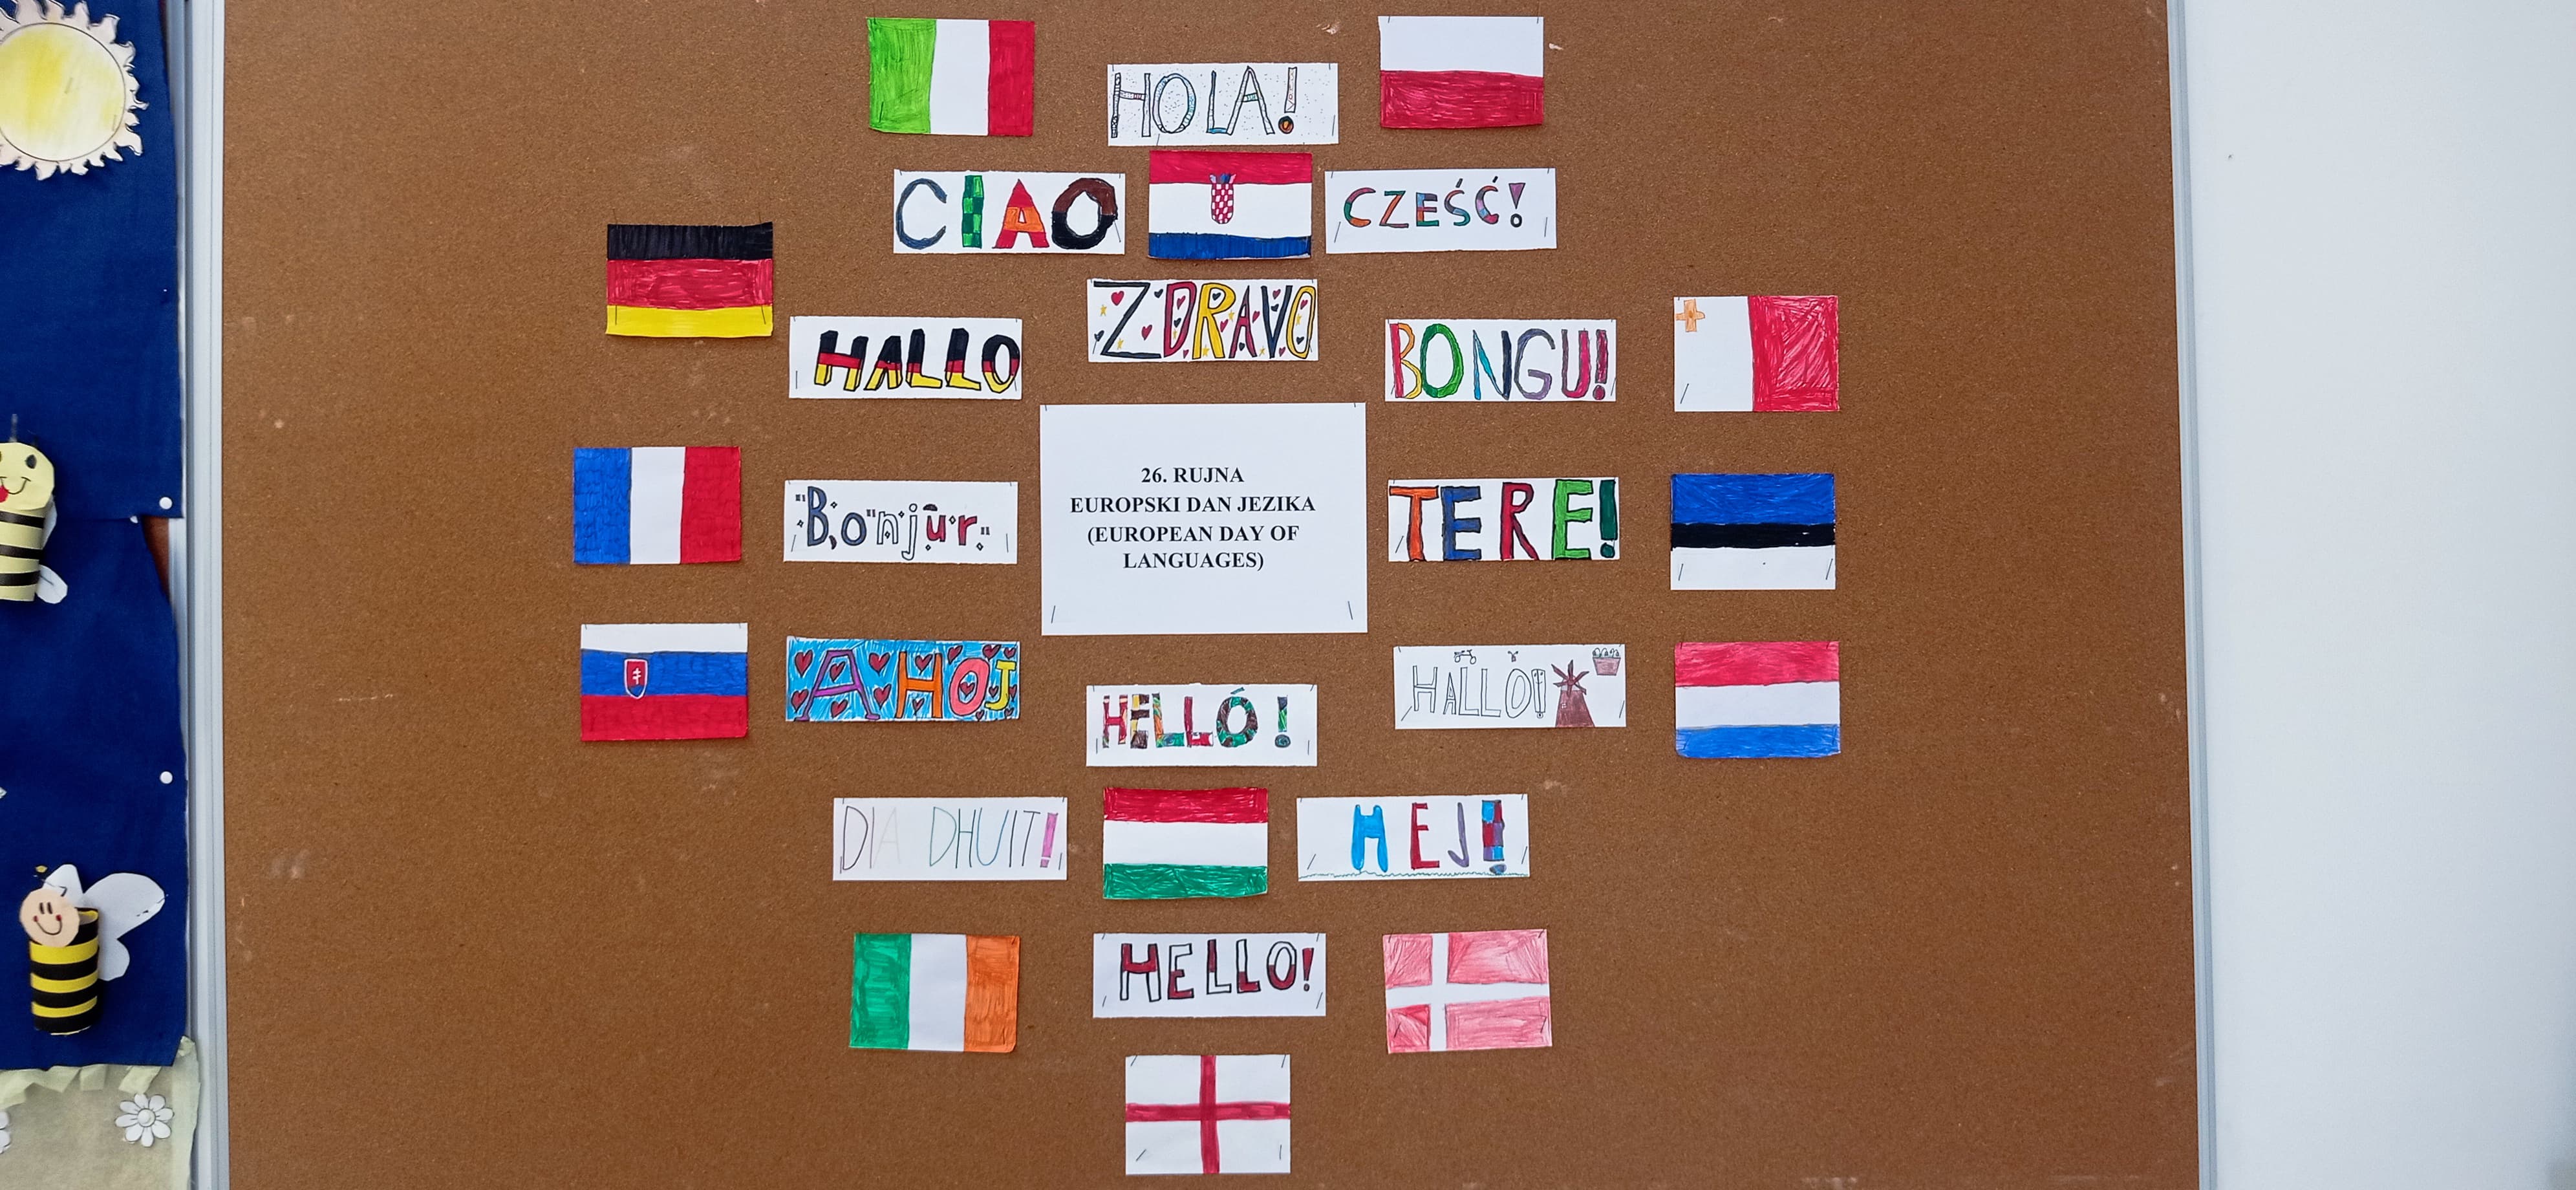 HOLA!
CIAO
CZEŚĆ!
ZDRAVO
HALLO
BONGU!
26. RUJNA
EUROPSKI DAN JEZIKA
(EUROPEAN DAY OF
LANGUAGES)
"Bonjūr"
TERE!
AHOJ
HALLO!
HELLÓ!
DIA DHUIT!
HEJ!
HELLO!